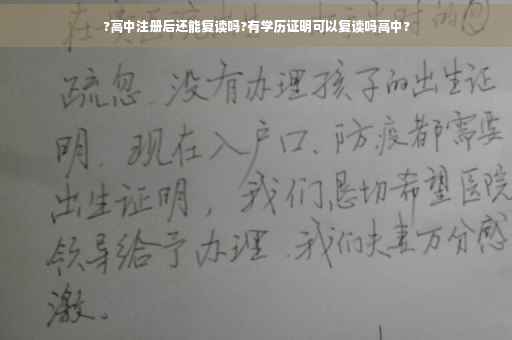 ?高中注册后还能复读吗?有学历证明可以复读吗高中?
疏忽.没有办理孩子的出生证
明.现在入户口、防疫都需要
出生证明，我们恳切希望医院
领导给予办理.我们夫妻万分感
激。